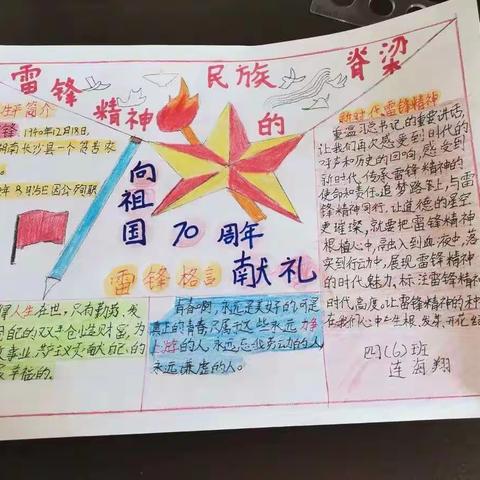 雷锋精神
民族的脊梁
生平简介
1940年12月18日,
湖南长沙县一个贫苦农
8月15日因公殉职
向祖国70周年
献礼
雷锋格言
人生在世,只有勤劳,发
自己的双手创造财富,为
事业
献自己的
幸福的。
青春啊,永远是美好的,可是
真正的青春,只属于这些永远力争
上游的人,永远忘我劳动的人,
永远谦虚的人。
新时代雷锋精神
重温习总书记的重要讲话,
让我们再次感受到时代的
呼声和历史的回响,感受到
新时代,传承雷锋精神的
使命和责任,追梦路上,与雷
锋精神同行,让道德的星空
更璀璨,就要把雷锋精神
根植心中,融入到血液中,落
实到行动中,展现雷锋精神
的时代魅力,标注雷锋精神
的时代高度,让雷锋精神的种
在我们心中生根、发芽、开花、结
四(6)班
连海翔